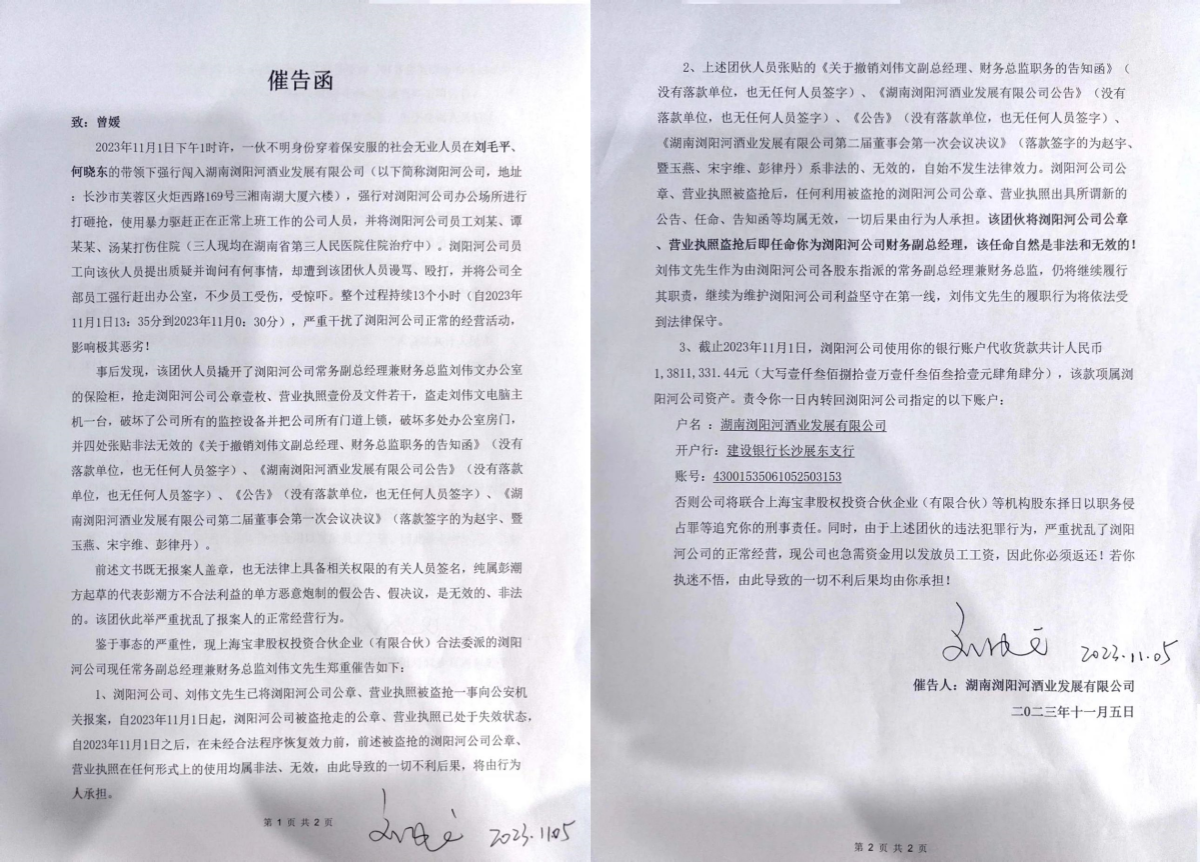 催告函
致：曾媛
2023年11月1日下午1时许，一伙不明身份穿着保安服的社会无业人员在刘毛平、
何晓东的带领下强行闯入湖南浏阳河酒业发展有限公司（以下简称浏阳河公司，地址
：长沙市芙蓉区火炬西路169号三湘南湖大厦六楼），强行对浏阳河公司办公场所进行
打砸抢，使用暴力驱赶正在正常上班工作的公司人员，并将浏阳河公司员工刘某、谭
某某、汤某打伤住院（三人现均在湖南省第三人民医院住院治疗中）。浏阳河公司员
工向该伙人员提出质疑并询问有何事情，却遭到该团伙人员谩骂、殴打，并将公司全
部员工强行赶出办公室，不少员工受伤，受惊吓。整个过程持续13个小时（自2023年
11月1日13：35分到2023年11月0：30分），严重干扰了浏阳河公司正常的经营活动，
影响极其恶劣！
事后发现，该团伙人员撬开了浏阳河公司常务副总经理兼财务总监刘伟文办公室
的保险柜，抢走浏阳河公司公章壹枚、营业执照壹份及文件若干，盗走刘伟文电脑主
机一台，破坏了公司所有的监控设备并把公司所有门道上锁，破坏多处办公室房门，
并四处张贴非法无效的《关于撤销刘伟文副总经理、财务总监职务的告知函》（没有
落款单位，也无任何人员签字）、《湖南浏阳河酒业发展有限公司公告》（没有落款
单位，也无任何人员签字）、《公告》（没有落款单位，也无任何人员签字）、《湖
南浏阳河酒业发展有限公司第二届董事会第一次会议决议》（落款签字的为赵宇、暨
玉燕、宋宇维、彭律丹）。
前述文书既无报案人盖章，也无法律上具备相关权限的有关人员签名，纯属彭潮
方起草的代表彭潮方不合法利益的单方恶意炮制的假公告、假决议，是无效的、非法
的。该团伙此举严重扰乱了报案人的正常经营行为。
鉴于事态的严重性，现上海宝聿股权投资合伙企业（有限合伙）合法委派的浏阳
河公司现任常务副总经理兼财务总监刘伟文先生郑重催告如下：
1、浏阳河公司、刘伟文先生已将浏阳河公司公章、营业执照被盗抢一事向公安机
关报案，自2023年11月1日起，浏阳河公司被盗抢走的公章、营业执照已处于失效状态，
自2023年11月1日之后，在未经合法程序恢复效力前，前述被盗抢的浏阳河公司公章、
营业执照在任何形式上的使用均属非法、无效，由此导致的一切不利后果，将由行为
人承担。
第 1 页 共 2 页
刘伟文 2023.11.05
2、上述团伙人员张贴的《关于撤销刘伟文副总经理、财务总监职务的告知函》（
没有落款单位，也无任何人员签字）、《湖南浏阳河酒业发展有限公司公告》（没有
落款单位，也无任何人员签字）、《公告》（没有落款单位，也无任何人员签字）、
《湖南浏阳河酒业发展有限公司第二届董事会第一次会议决议》（落款签字的为赵宇、
暨玉燕、宋宇维、彭律丹）系非法的、无效的，自始不发生法律效力。浏阳河公司公
章、营业执照被盗抢后，任何利用被盗抢的浏阳河公司公章、营业执照出具所谓新的
公告、任命、告知函等均属无效，一切后果由行为人承担。该团伙将浏阳河公司公章
、营业执照盗抢后即任命你为浏阳河公司财务副总经理，该任命自然是非法和无效的！
刘伟文先生作为由浏阳河公司各股东指派的常务副总经理兼财务总监，仍将继续履行
其职责，继续为维护浏阳河公司利益坚守在第一线，刘伟文先生的履职行为将依法受
到法律保守。
3、截止2023年11月1日，浏阳河公司使用你的银行账户代收货款共计人民币
1,3811,331.44元（大写壹仟叁佰捌拾壹万壹仟叁佰叁拾壹元肆角肆分），该款项属浏
阳河公司资产。责令你一日内转回浏阳河公司指定的以下账户：
户名 ：湖南浏阳河酒业发展有限公司
开户行：建设银行长沙展东支行
账号：43001535061052503153
否则公司将联合上海宝聿股权投资合伙企业（有限合伙）等机构股东择日以职务侵
占罪等追究你的刑事责任。同时，由于上述团伙的违法犯罪行为，严重扰乱了浏阳
河公司的正常经营，现公司也急需资金用以发放员工工资，因此你必须返还！若你
执迷不悟，由此导致的一切不利后果均由你承担！
刘伟文 2023.11.05
催告人：湖南浏阳河酒业发展有限公司
二〇二三年十一月五日
第 2 页 共 2 页